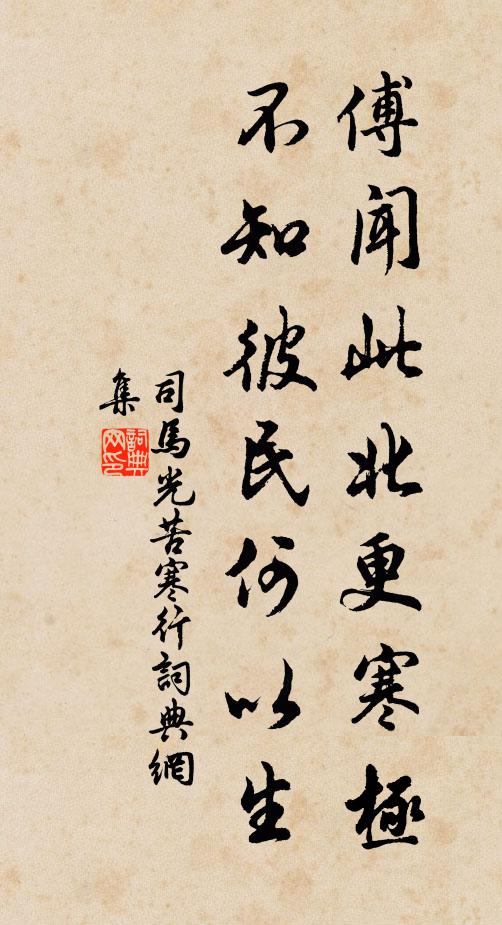 傅聞此北更寒極
不知彼民何以生
司馬光苦寒行詞典網
集
詞典網印